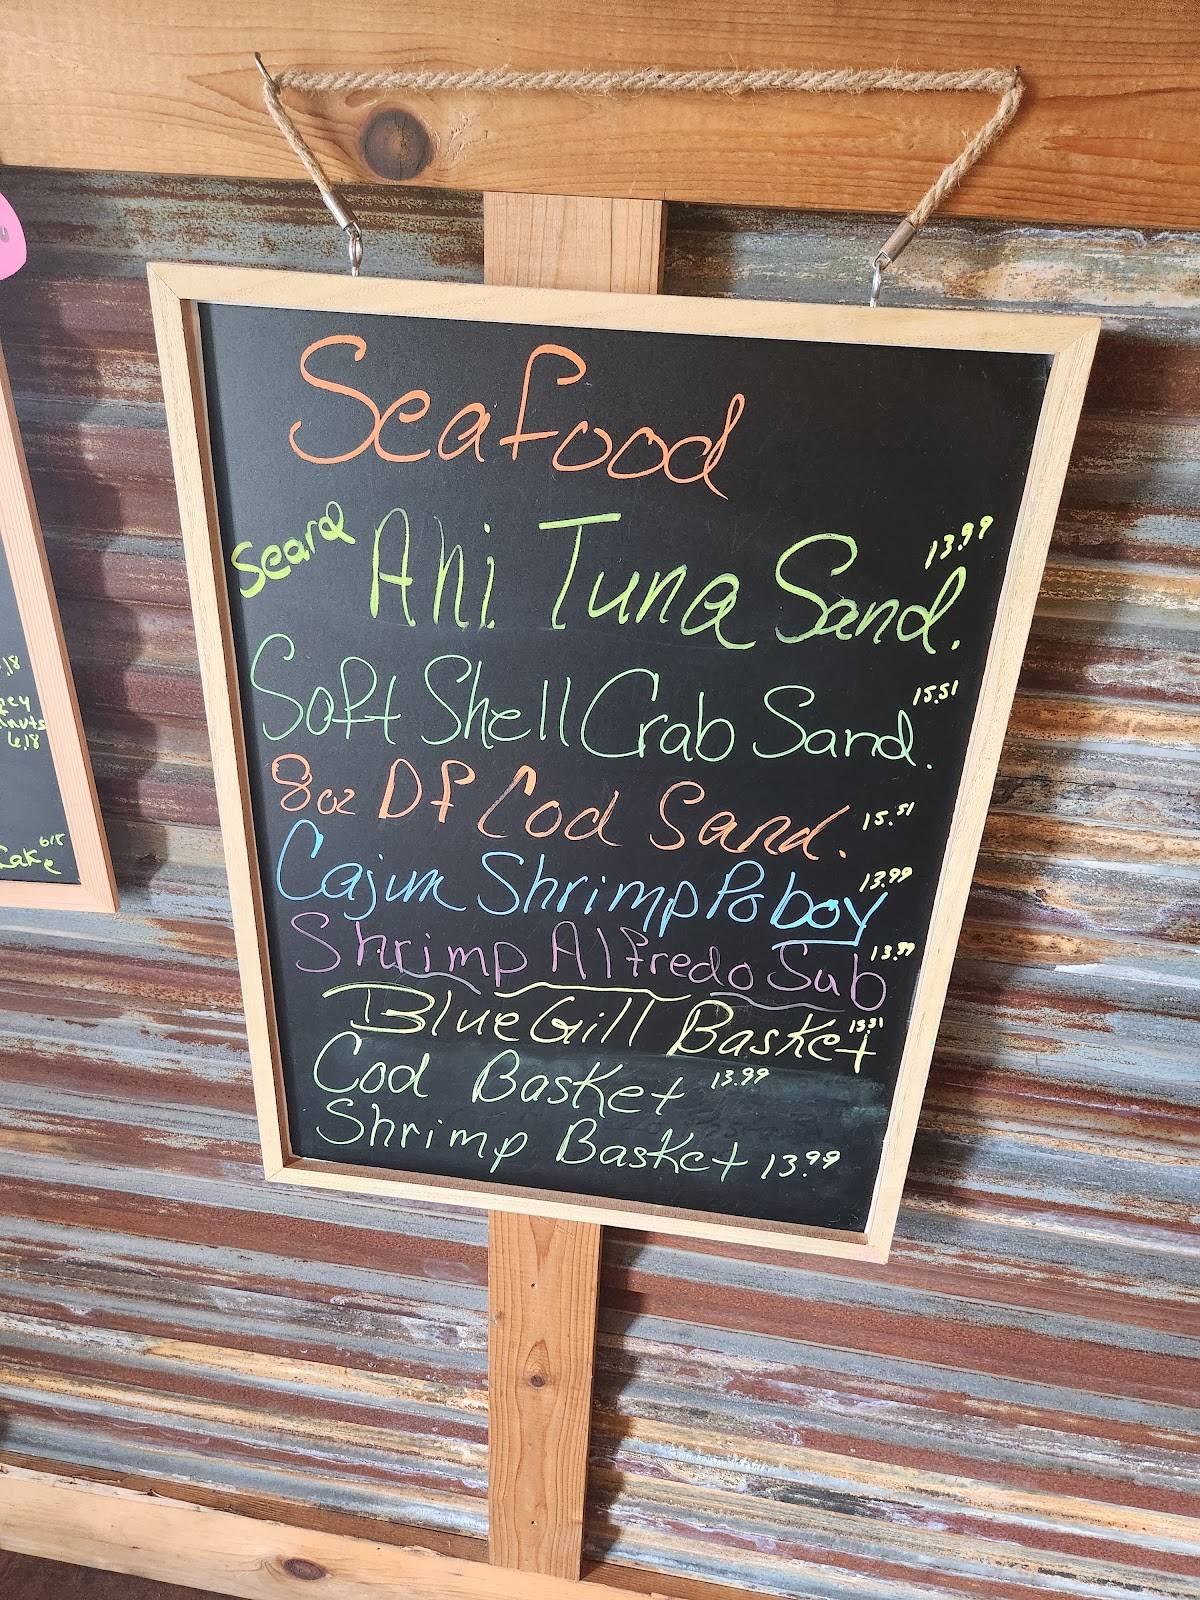 Seafood
Seard Ahi Tuna Sand. 13.99
Soft Shell Crab Sand. 15.51
8oz DF Cod Sand. 15.51
Cajun Shrimp Poboy 13.99
Shrimp Alfredo Sub 13.99
Blue Gill Basket 15.51
Cod Basket 13.99
Shrimp Basket 13.99
6.18
Cake 618